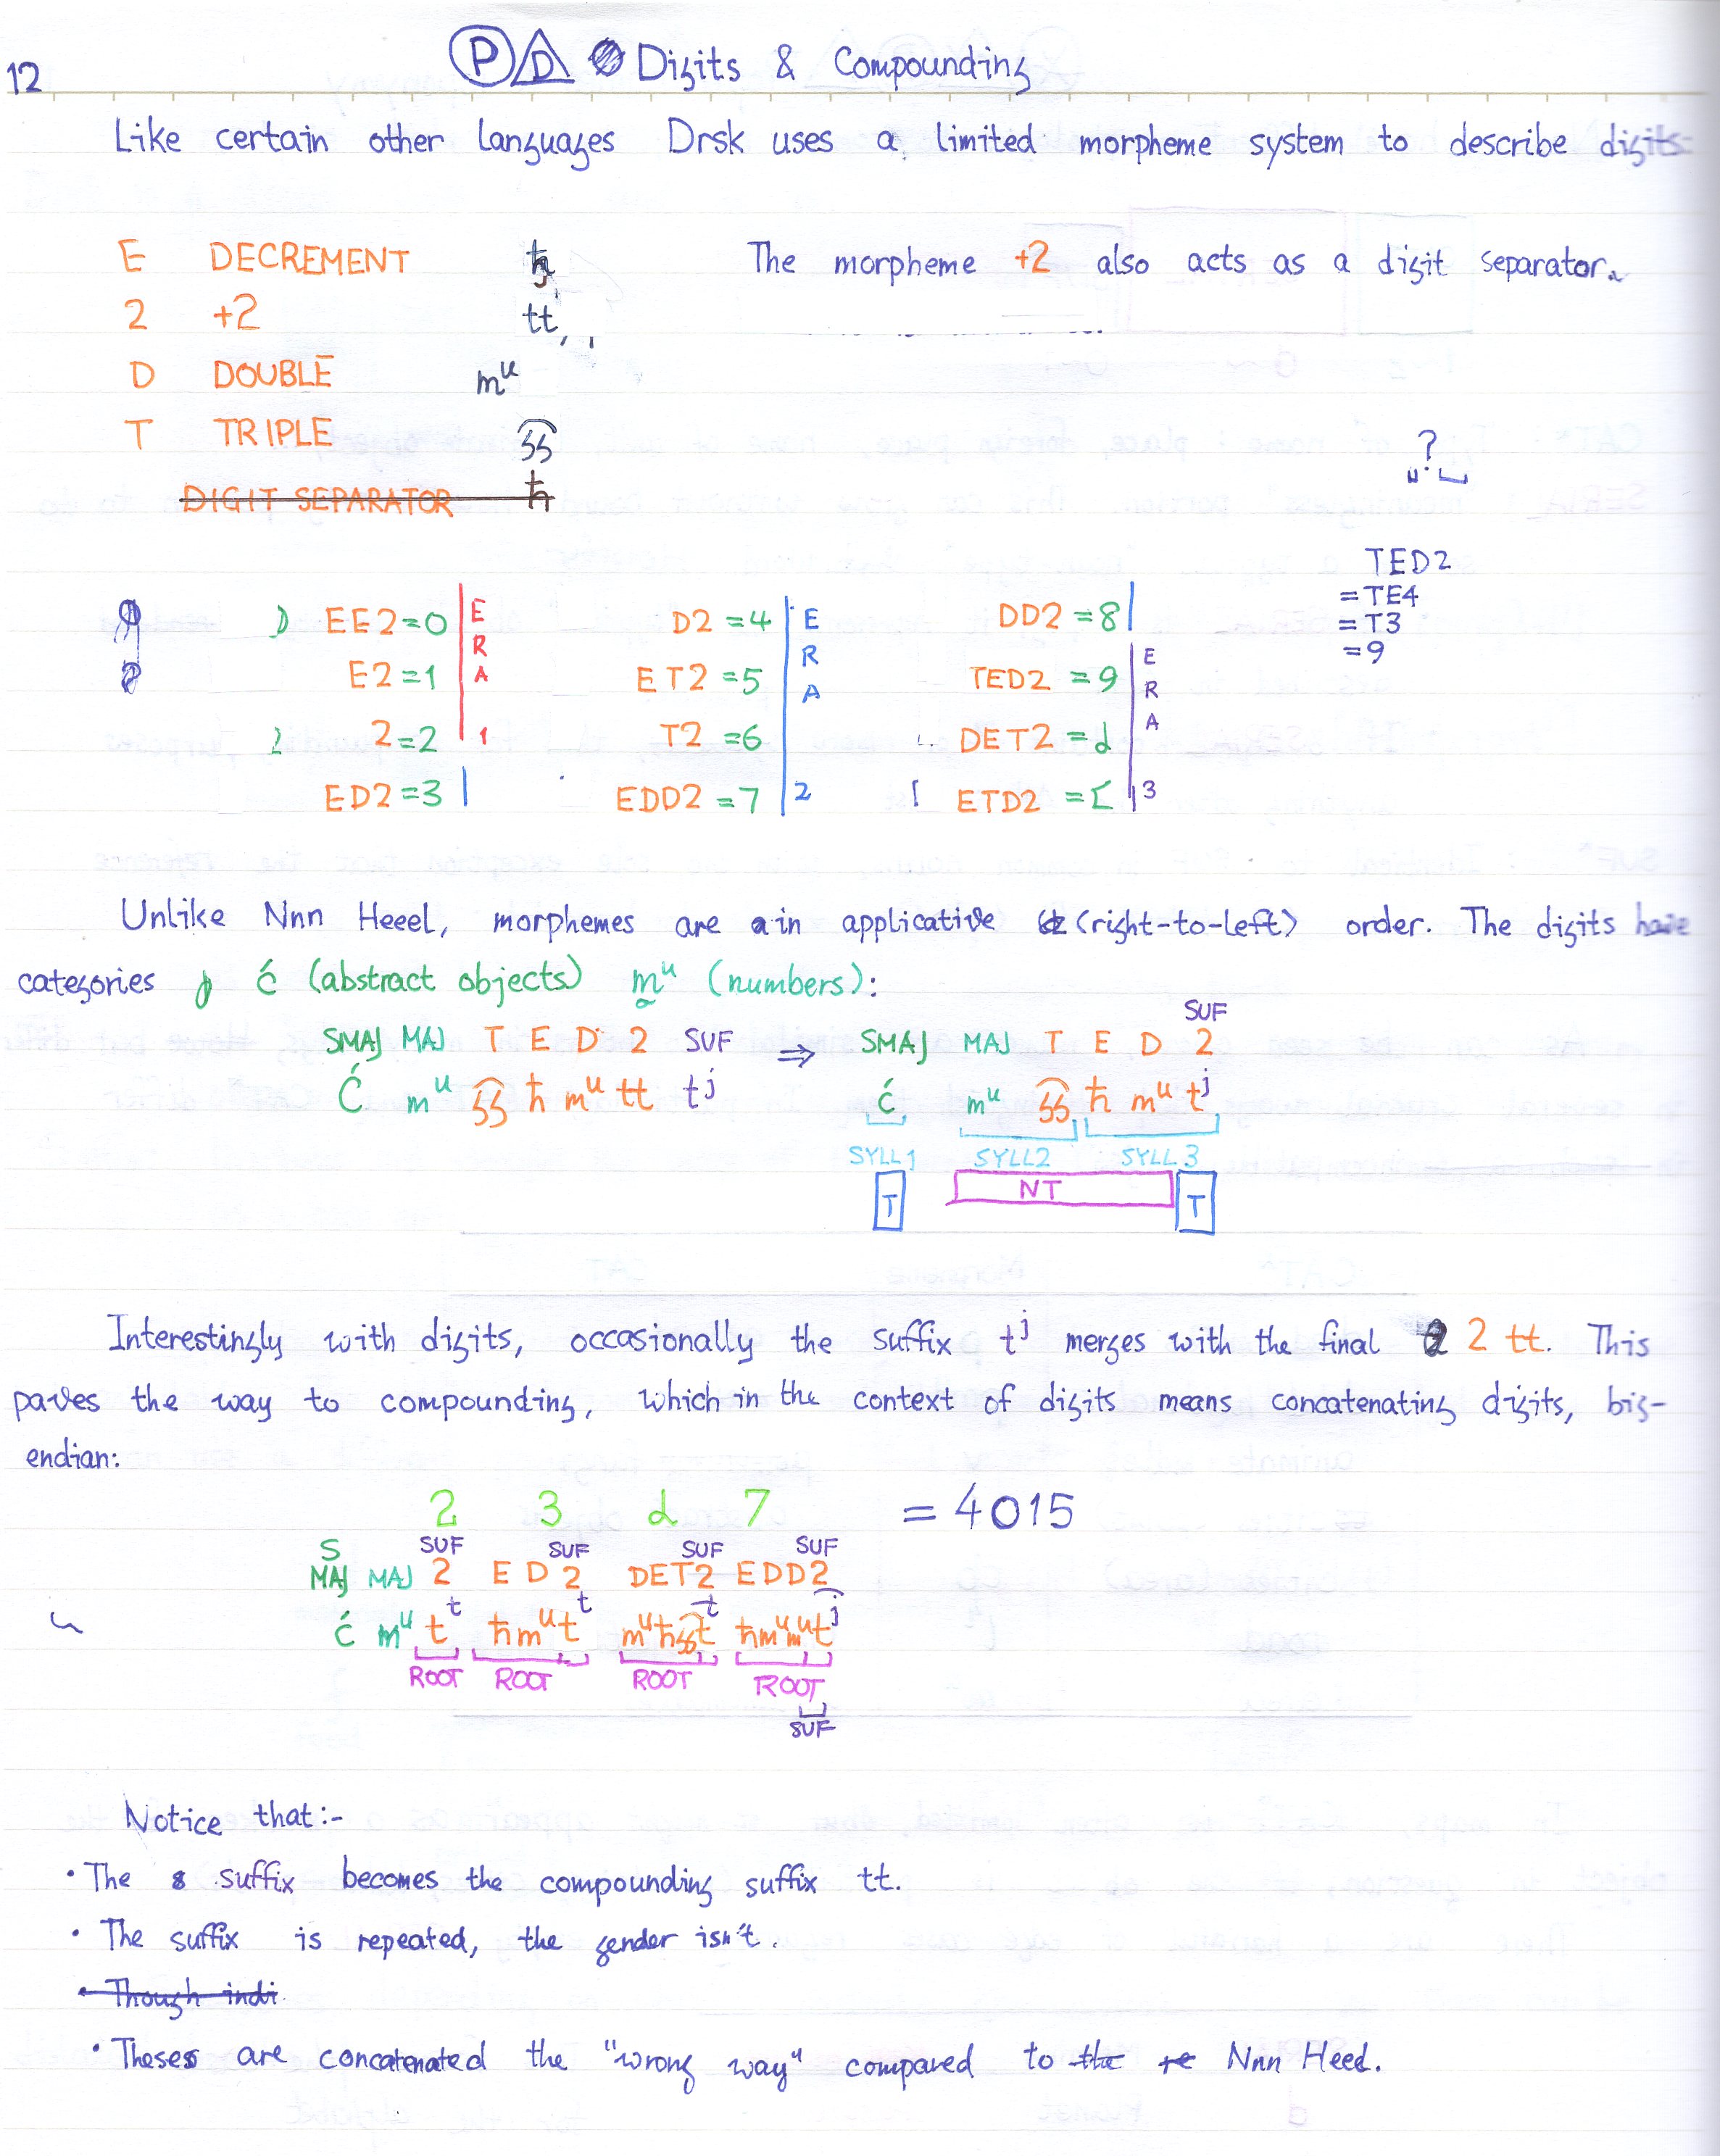 12 P D Digits & Compounding
Like certain other languages Drsk uses a limited morpheme system to describe digits:
E DECREMENT ħ The morpheme +2 also acts as a digit separator.
2 +2 tt
D DOUBLE mᵘ
T TRIPLE ʒ͡ʒ
?
DIGIT SEPARATOR ħ
TED2
=TE4
=T3
=9
EE2=0 D2=4 DD2=8
E2=1 ET2=5 TED2=9
2=2 T2=6 DET2=d
ED2=3 EDD2=7 ETD2=Ɛ
ERA 1 ERA 2 ERA 3
Unlike Nnn Heeel, morphemes are in applicative (right-to-left) order. The digits have
categories ć (abstract objects) mᵘ (numbers):
SMAJ MAJ T E D 2 SUF ⇒ SMAJ MAJ T E D 2 SUF
Ć mᵘ ʒ͡ʒ ħ mᵘ tt tʲ ć mᵘ ʒ͡ʒ ħ mᵘ tʲ
SYLL1 SYLL2 SYLL3
T NT T
Interestingly with digits, occasionally the suffix tʲ merges with the final 2 tt. This
paves the way to compounding, which in the context of digits means concatenating digits, big-
endian:
2 3 d 7 = 4015
SUF SUF SUF SUF
SMAJ MAJ 2 ED2 DET2 EDD2
ć mᵘ tᵗ ħmᵘtᵗ mᵘħʒ͡ʒtᵗ ħmᵘmᵘtʲ
ROOT ROOT ROOT ROOT
SUF
Notice that:-
• The suffix becomes the compounding suffix tt.
• The suffix is repeated, the gender isn't.
• Though indi
• Theses are concatenated the "wrong way" compared to the re Nnn Heel.